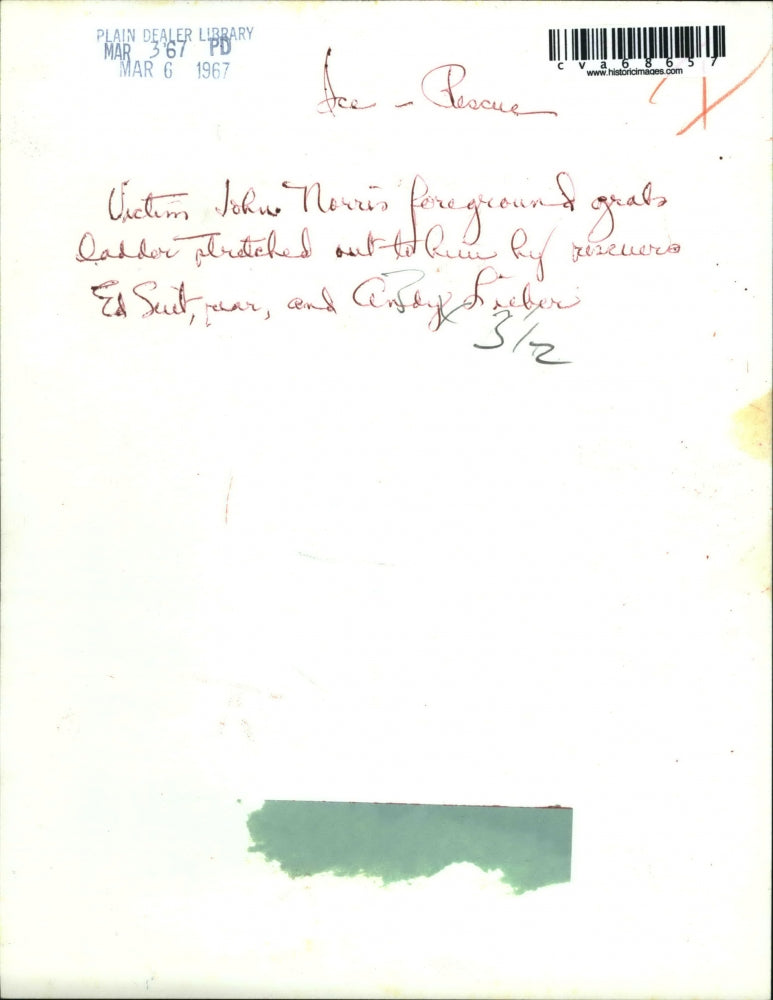 PLAIN DEALER LIBRARY
MAR 3'67 PD
MAR 6 1967
cva68657
www.historicimages.com
Ice - Rescue
Victim John Norris foreground grabs
ladder stretched out to him by rescuers
Ed Suit, rear, and Andy Lieber
3/2